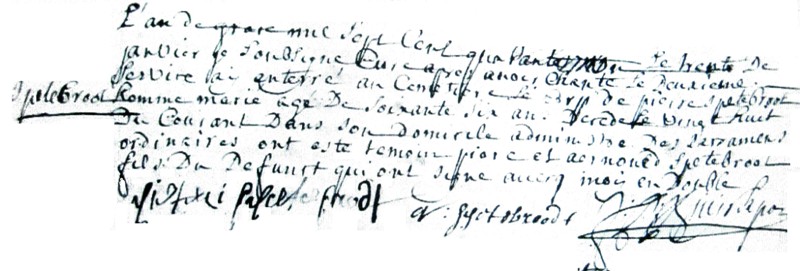 L'an de grace mil sept cent quarante le trente de
janvier je soubsigne Curé apres avoir chanté le deuxieme
Spetebroot
Service ai enterré au Cemetiere le corps de pierre spetebroot
homme marié agé de soixante six ans decedé le vingt huit
Du Courant Dans son domicile administré Des sacramens
ordinaires ont esté temoin piere et aernoud spetebroot
fils Du Defunct qui ont signé avecq moi en double